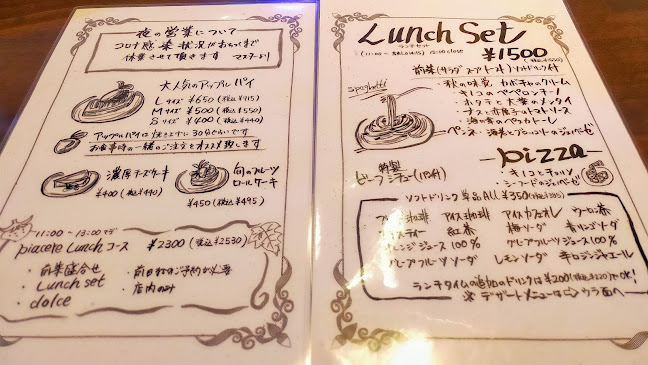 夜の営業について
コロナ感染状況がおちつくまで
休業させて頂きます マスターより
大人気のアップルパイ
Lサイズ ¥650 (税込¥715)
Mサイズ ¥500 (税込¥550)
Sサイズ ¥400 (税込¥440)
アップルパイは焼き上げに30分くらいです
お食事時の一緒のご注文をオススメ致します
濃厚チーズケーキ
¥400 (税込¥440)
旬のフルーツ
ロールケーキ
¥450 (税込¥495)
11:00 ~ 13:00
piacere Lunch コース ¥2300 (税込¥2530)
・前菜盛合せ
・Lunch set
・dolce
・前日までのご予約が必要
・店内のみ
Lunch Set
ランチセット
¥1500
前菜(サラダ スープ トースト) ソフトドリンク付
spaghetti
・秋の味覚 カボチャのクリーム
・キノコのペペロンチーノ
・ホタテと大葉のメンタイ
・ナスと唐辛子のトマトソース
・海の幸のペスカトーレ
ペンネ・海老とブロッコリのジェノベーゼ
特製
ビーフシチュー (パン付)
pizza
・キノコとチョリソ
・シーフードのジェノベーゼ
ソフトドリンク 単品ALL ¥350 (税込¥385)
アイス珈琲 アイスカフェオレ ウーロン茶
紅茶 梅ソーダ 青リンゴソーダ
オレンジジュース100% グレープフルーツジュース100%
グレープフルーツソーダ レモンソーダ 辛口ジンジャエール
ランチタイムの追加のドリンクは¥200 (税込¥220)でOK!
※デザートメニューはウラ面へ